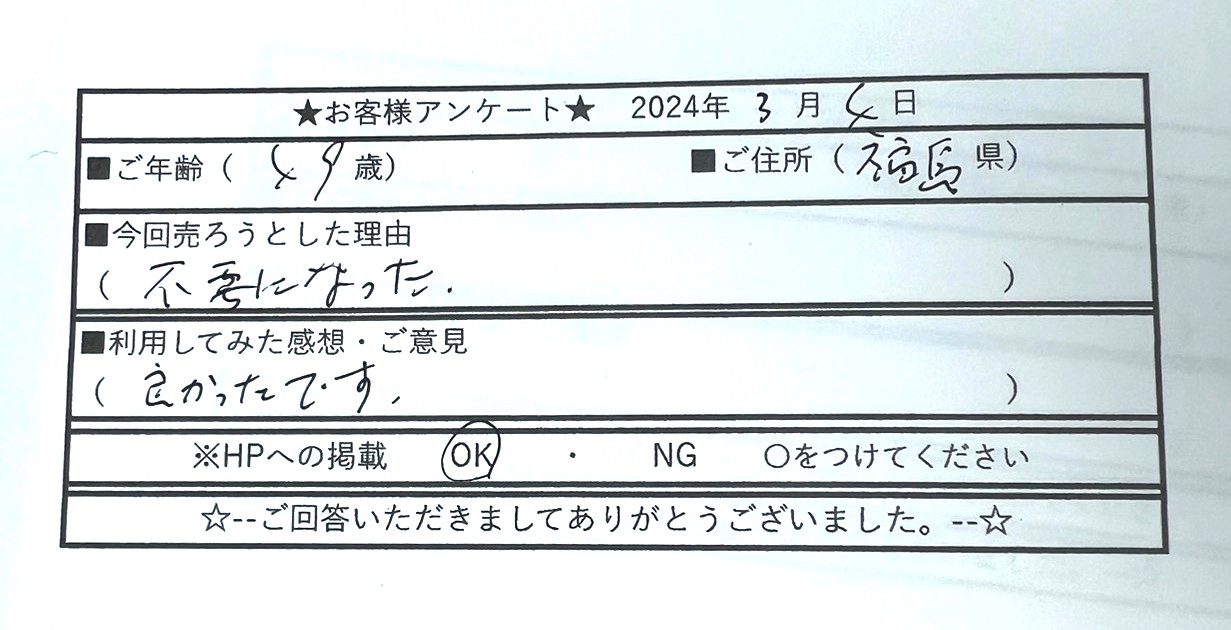 ★お客様アンケート★ 2024年 3 月 4 日
■ご年齢( 49 歳) ■ご住所(福島県)
■今回売ろうとした理由
( 不要になった. )
■利用してみた感想・ご意見
( 良かったです. )
※HPへの掲載 OK ・ NG 〇をつけてください
☆--ご回答いただきましてありがとうございました。--☆